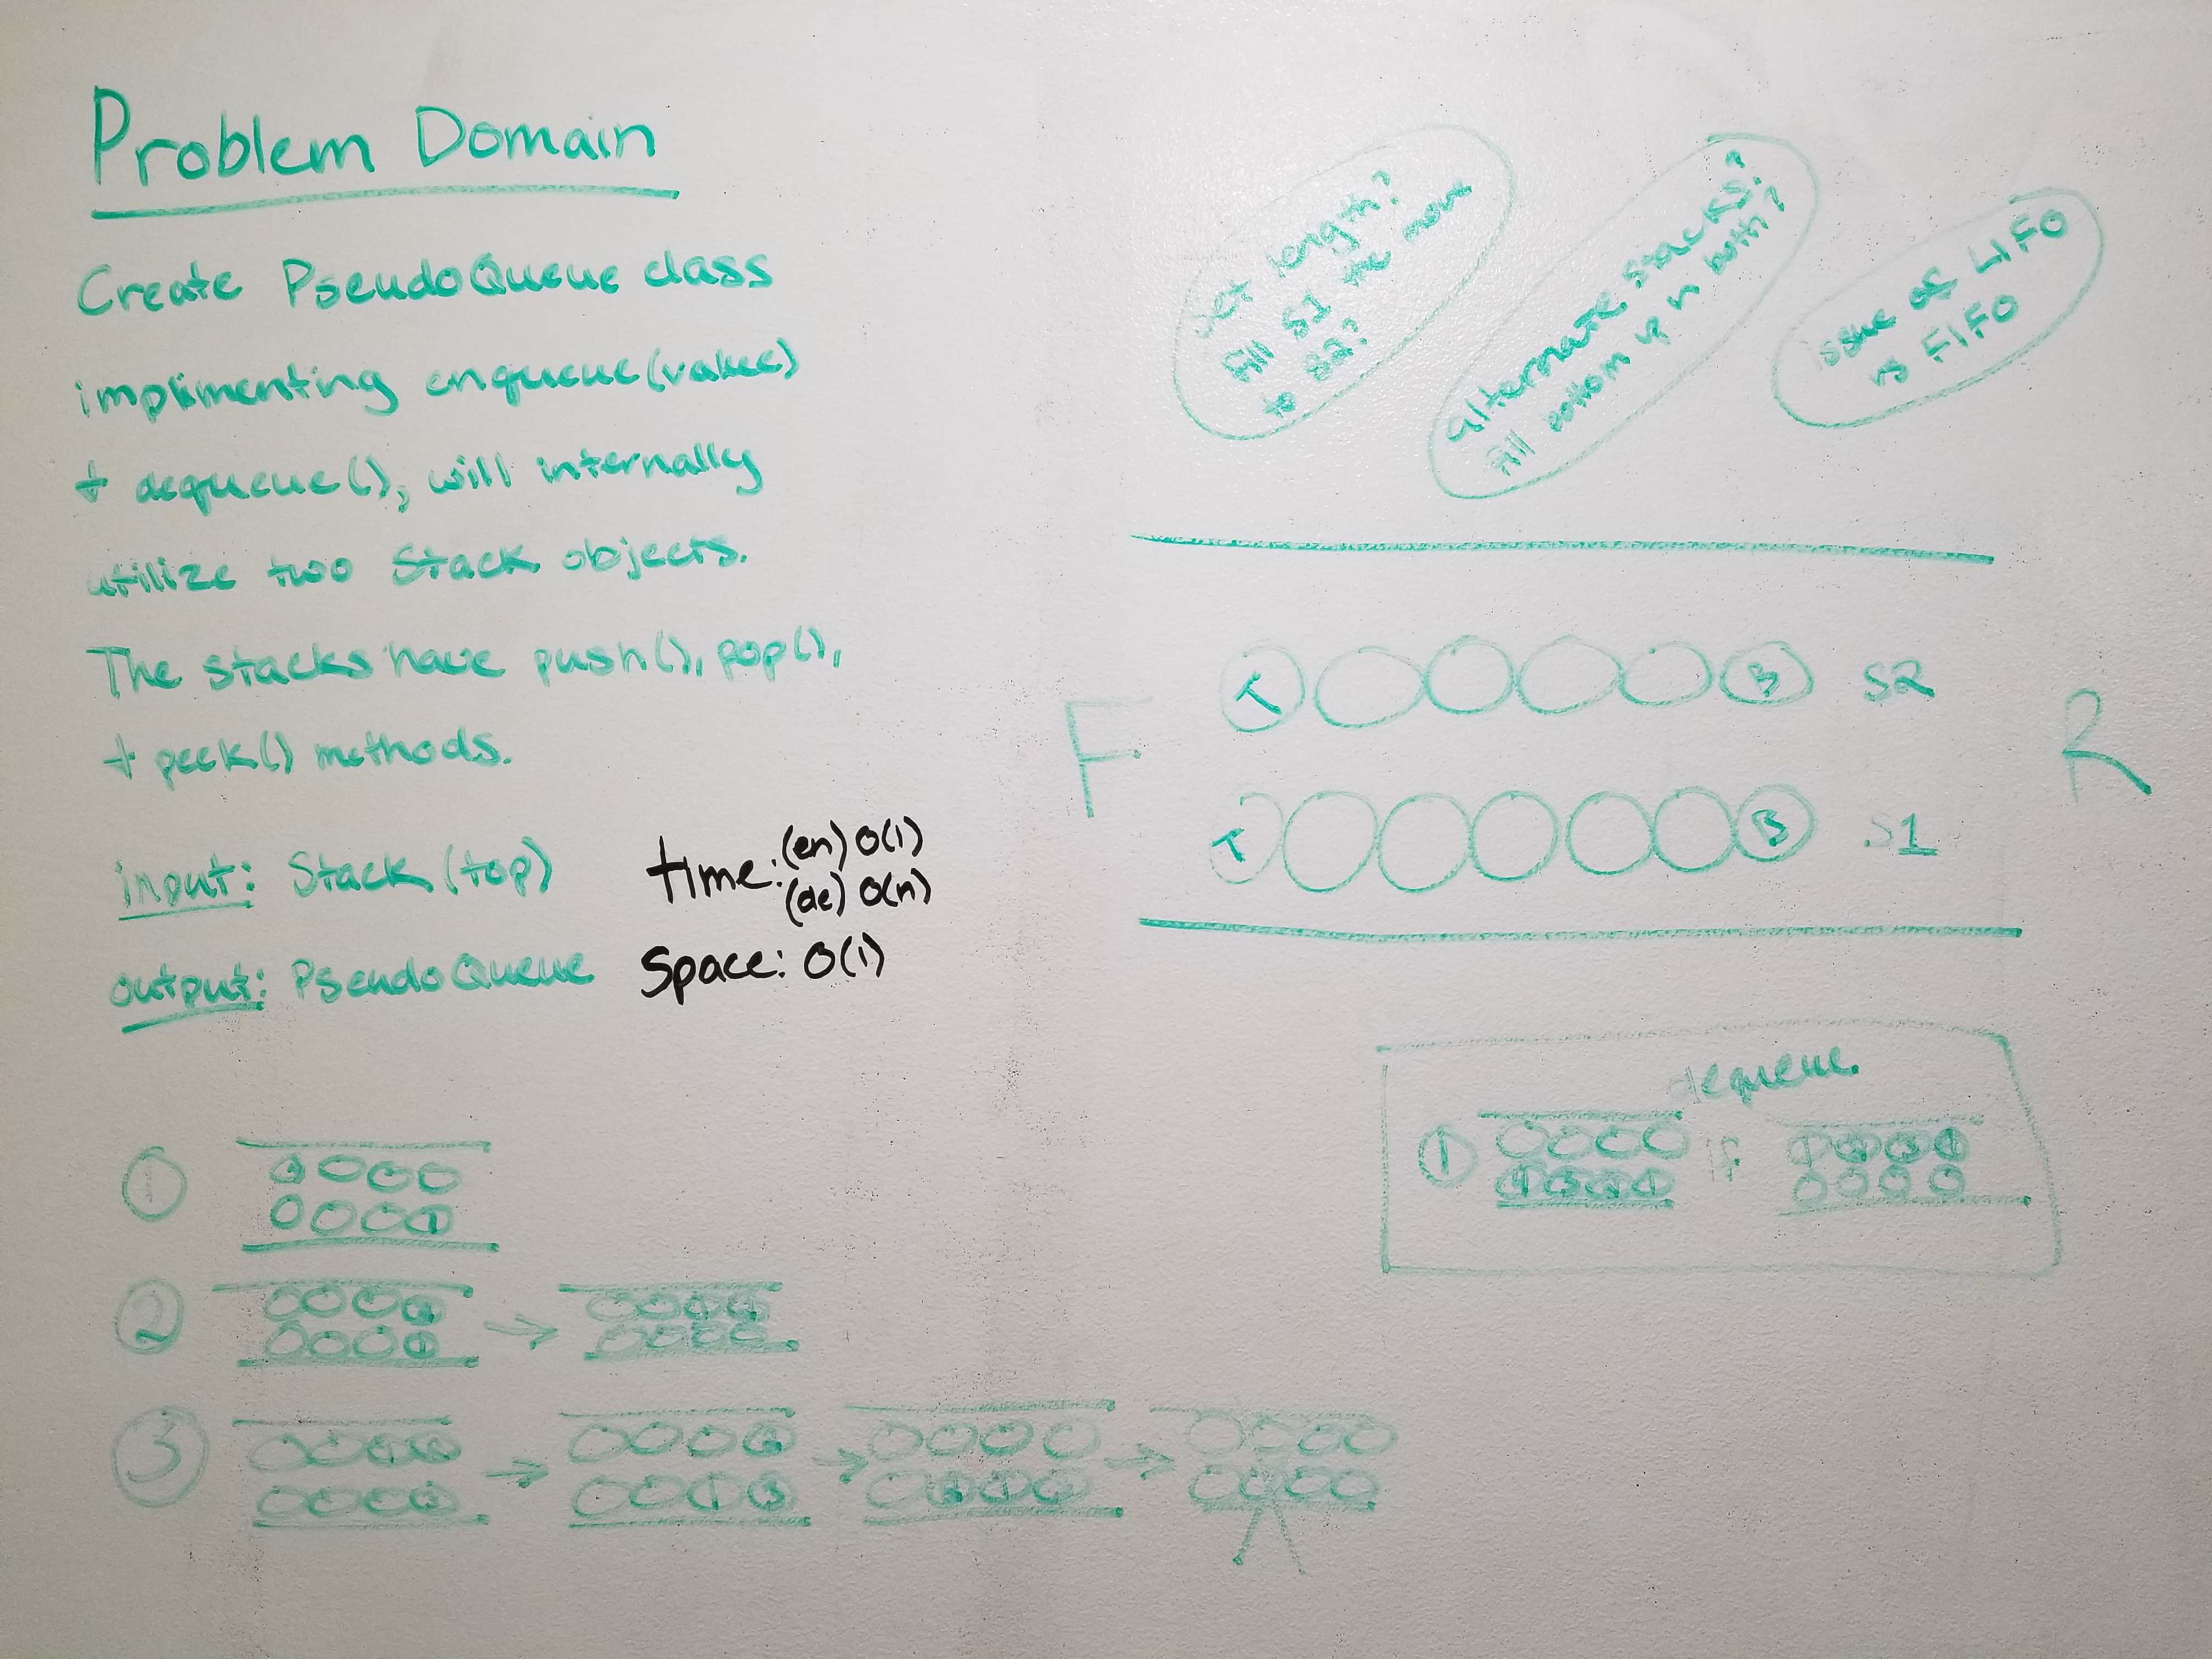 Problem Domain
Create PseudoQueue class
implimenting enqueue(value)
+ dequeue(), will internally
utilize two Stack objects.
The stacks have push(), pop(),
+ peek() methods.
input: Stack (top)
output: PseudoQueue
time: (en) O(1)
(de) O(n)
Space: O(1)
Set length?
fill S1 the move
to S2?
alternate stacks?
fill bottom up n both?
issue of LIFO
vs FIFO
F
T B S2
T B S1
R
dequeue
1
1
2
3